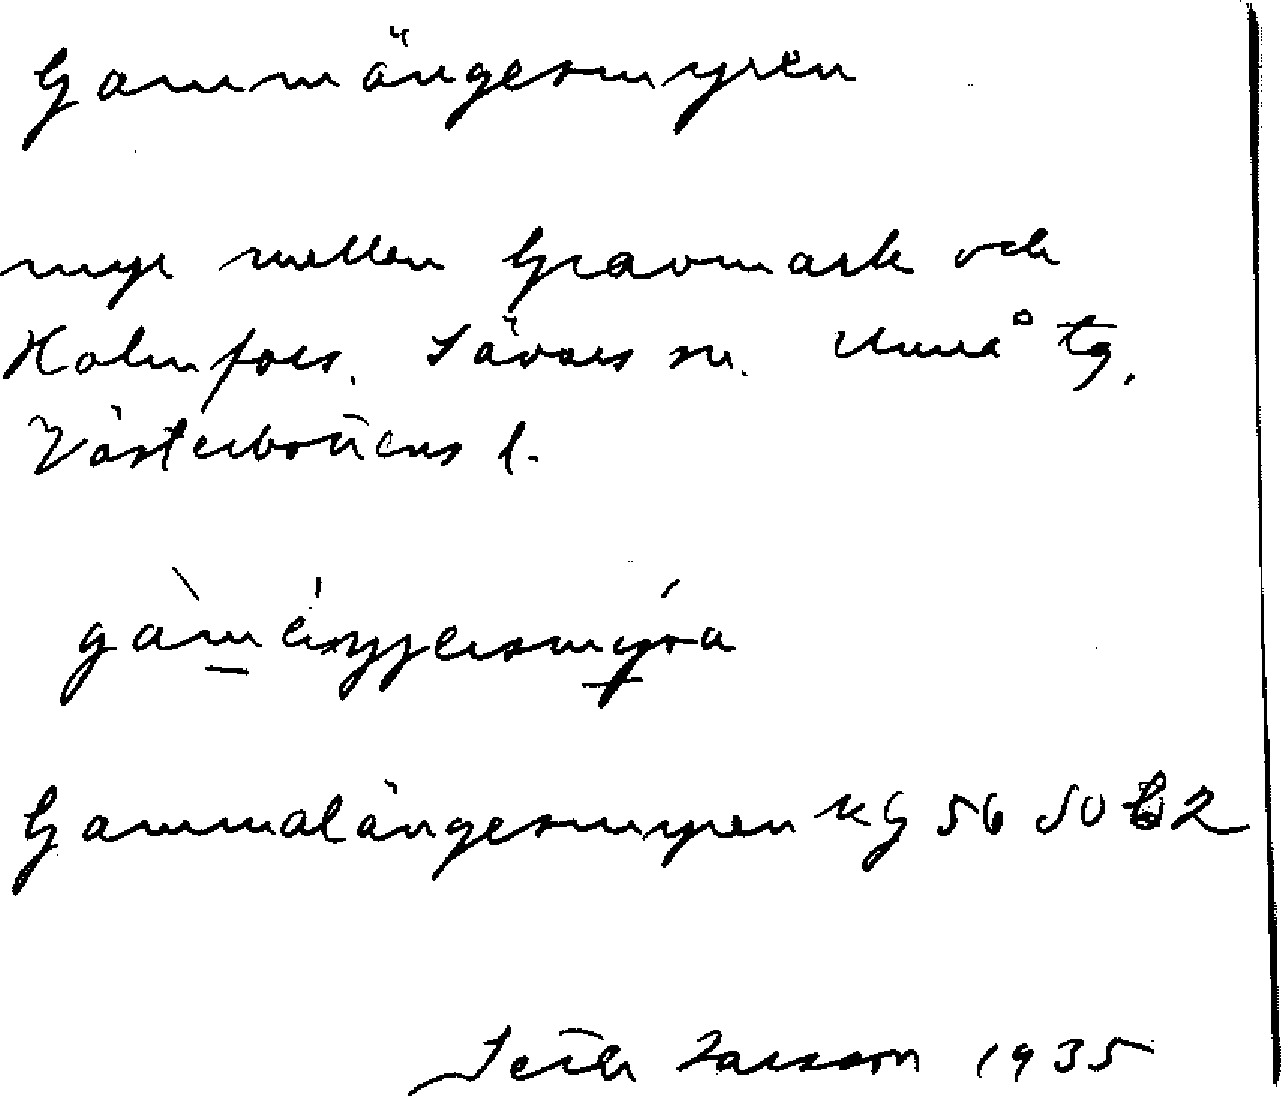 Gammängesmyren
myr mellan Gravmark och
Holmfors. Sävars sn. Umeå tg.
Västerbottens l.
Gammalängesmyren KG 56 50 62
Larsson 1935